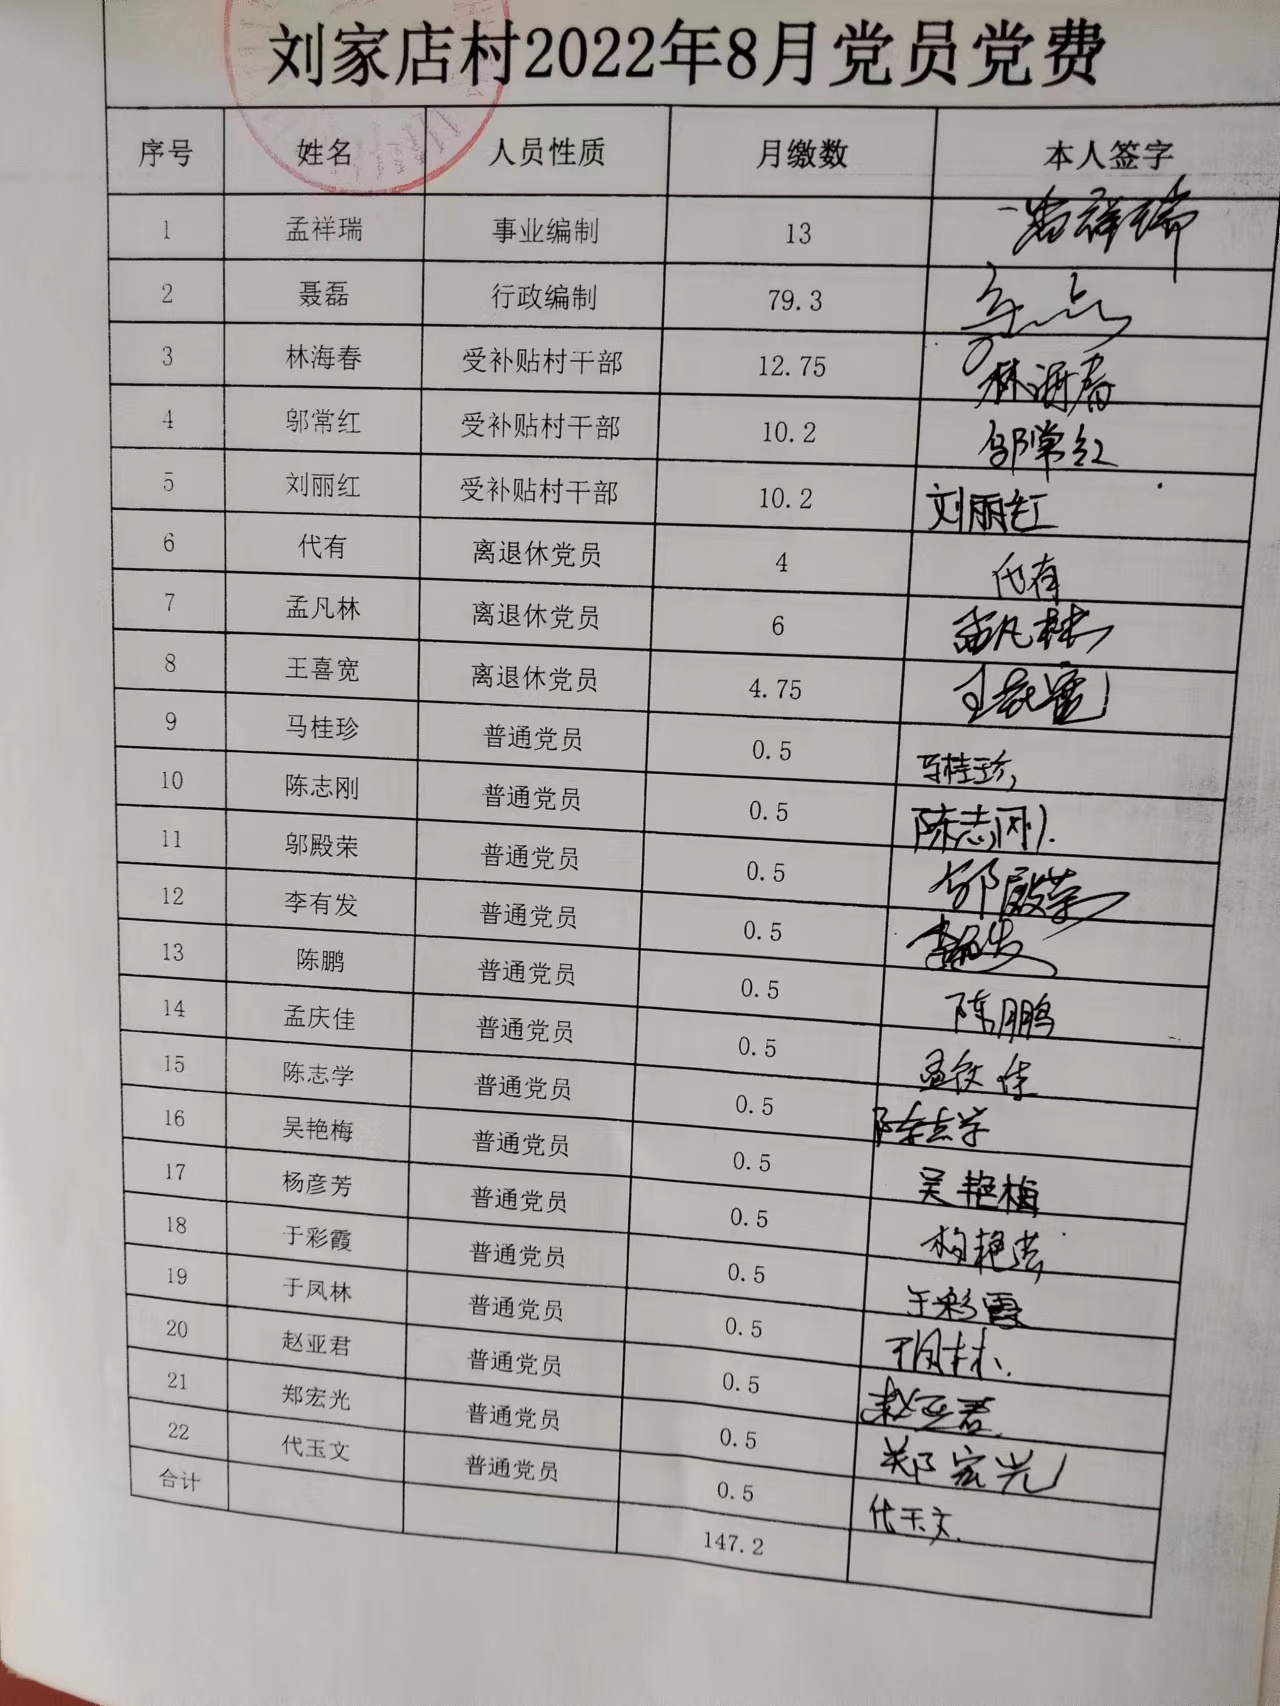 刘家店村2022年8月党员党费
序号 姓名 人员性质 月缴数 本人签字
1 孟祥瑞 事业编制 13 孟祥瑞
2 聂磊 行政编制 79.3
3 林海春 受补贴村干部 12.75 林海春
4 邬常红 受补贴村干部 10.2 邬常红
5 刘丽红 受补贴村干部 10.2 刘丽红
6 代有 离退休党员 4 代有
7 孟凡林 离退休党员 6 孟凡林
8 王喜宽 离退休党员 4.75 王喜宽
9 马桂珍 普通党员 0.5 马桂珍
10 陈志刚 普通党员 0.5 陈志刚
11 邬殿荣 普通党员 0.5 邬殿荣
12 李有发 普通党员 0.5 李有发
13 陈鹏 普通党员 0.5 陈鹏
14 孟庆佳 普通党员 0.5 孟庆佳
15 陈志学 普通党员 0.5 陈志学
16 吴艳梅 普通党员 0.5 吴艳梅
17 杨彦芳 普通党员 0.5 杨艳芳
18 于彩霞 普通党员 0.5 于彩霞
19 于凤林 普通党员 0.5 于凤林
20 赵亚君 普通党员 0.5 赵亚君
21 郑宏光 普通党员 0.5 郑宏光
22 代玉文 普通党员 0.5 代玉文
合计 147.2